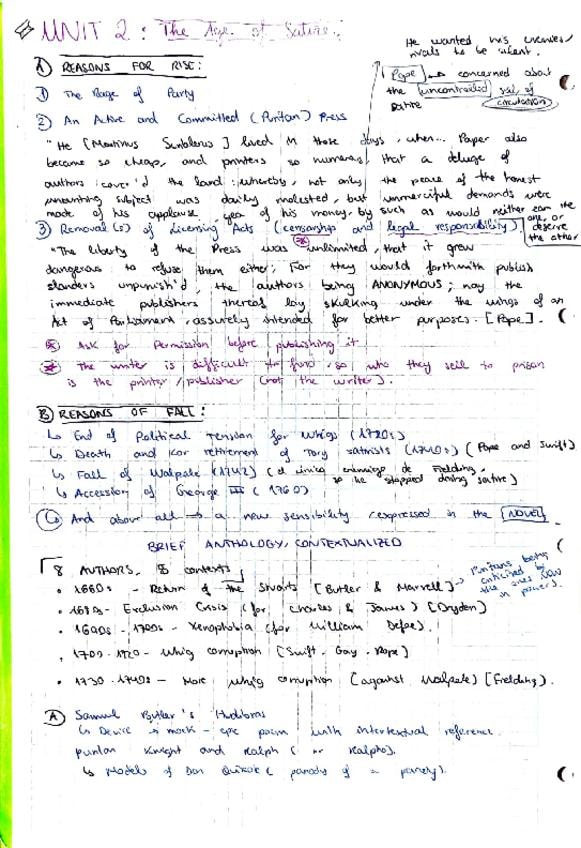 UNIT 2: The Age of Satire.
He wanted his enemies/
rivals to be silent.
Pope → concerned about
the uncontrolled of
satire circulation
A) REASONS FOR RISE:
1) The Rage of Party
2) An Active and Committed (Puritan) Press
"He [Martinus Scriblerus] lived in those days, when... Paper also
became so cheap, and printers so numerous that a deluge of
authors cover'd the land: whereby, not only the peace of the honest
unwriting subject was daily molested, but unmerciful demands were
made of his applause, yea of his money, by such as would neither earn the
one, or
deserve
the other
3) Removal(s) of Licensing Acts (censorship and legal responsibility)
"The liberty of the Press was unlimited, that it grew
dangerous to refuse them either; For they would forthwith publish
slanders unpunish'd, the authors being ANONYMOUS; nay the
immediate publishers thereof lay skulking under the wings of an
Act of Parliament, assurely intended for better purposes. [Pope].
Ask for Permission before publishing it
The writer is difficult to find, so who they send to prison
is the printer/publisher (not the writer).
B) REASONS OF FALL:
↳ End of Political Tension for Whigs (1720s)
↳ Death and/or retirement of Tory satirists (1740s) (Pope and Swift)
↳ Fall of Walpole (1742) (el único enemigo de Fielding,
so he stopped doing satire)
↳ Accession of George III (1760)
↳ And above all → a new sensibility expressed in the NOVEL
BRIEF ANTHOLOGY, CONTEXTUALIZED
8 AUTHORS, 5 contexts
• 1660s - Return of the Stuarts [Butler & Marvell] →
Puritans being
criticized by
the ones now
in power).
• 1680s - Exclusion Crisis (for Charles & James) [Dryden]
• 1690s - 1700s - Xenophobia (for William Defoe).
• 1700-1720 - Whig corruption [Swift, Gay, Pope]
• 1730-1740s - More Whig corruption (against Walpole) [Fielding].
A) Samuel Butler's Hudibras
↳ Device is mock-epic poem with intertextual reference.
puritan Knight and Ralph (or Ralpho).
↳ Models of Don Quixote (parody of a parody).